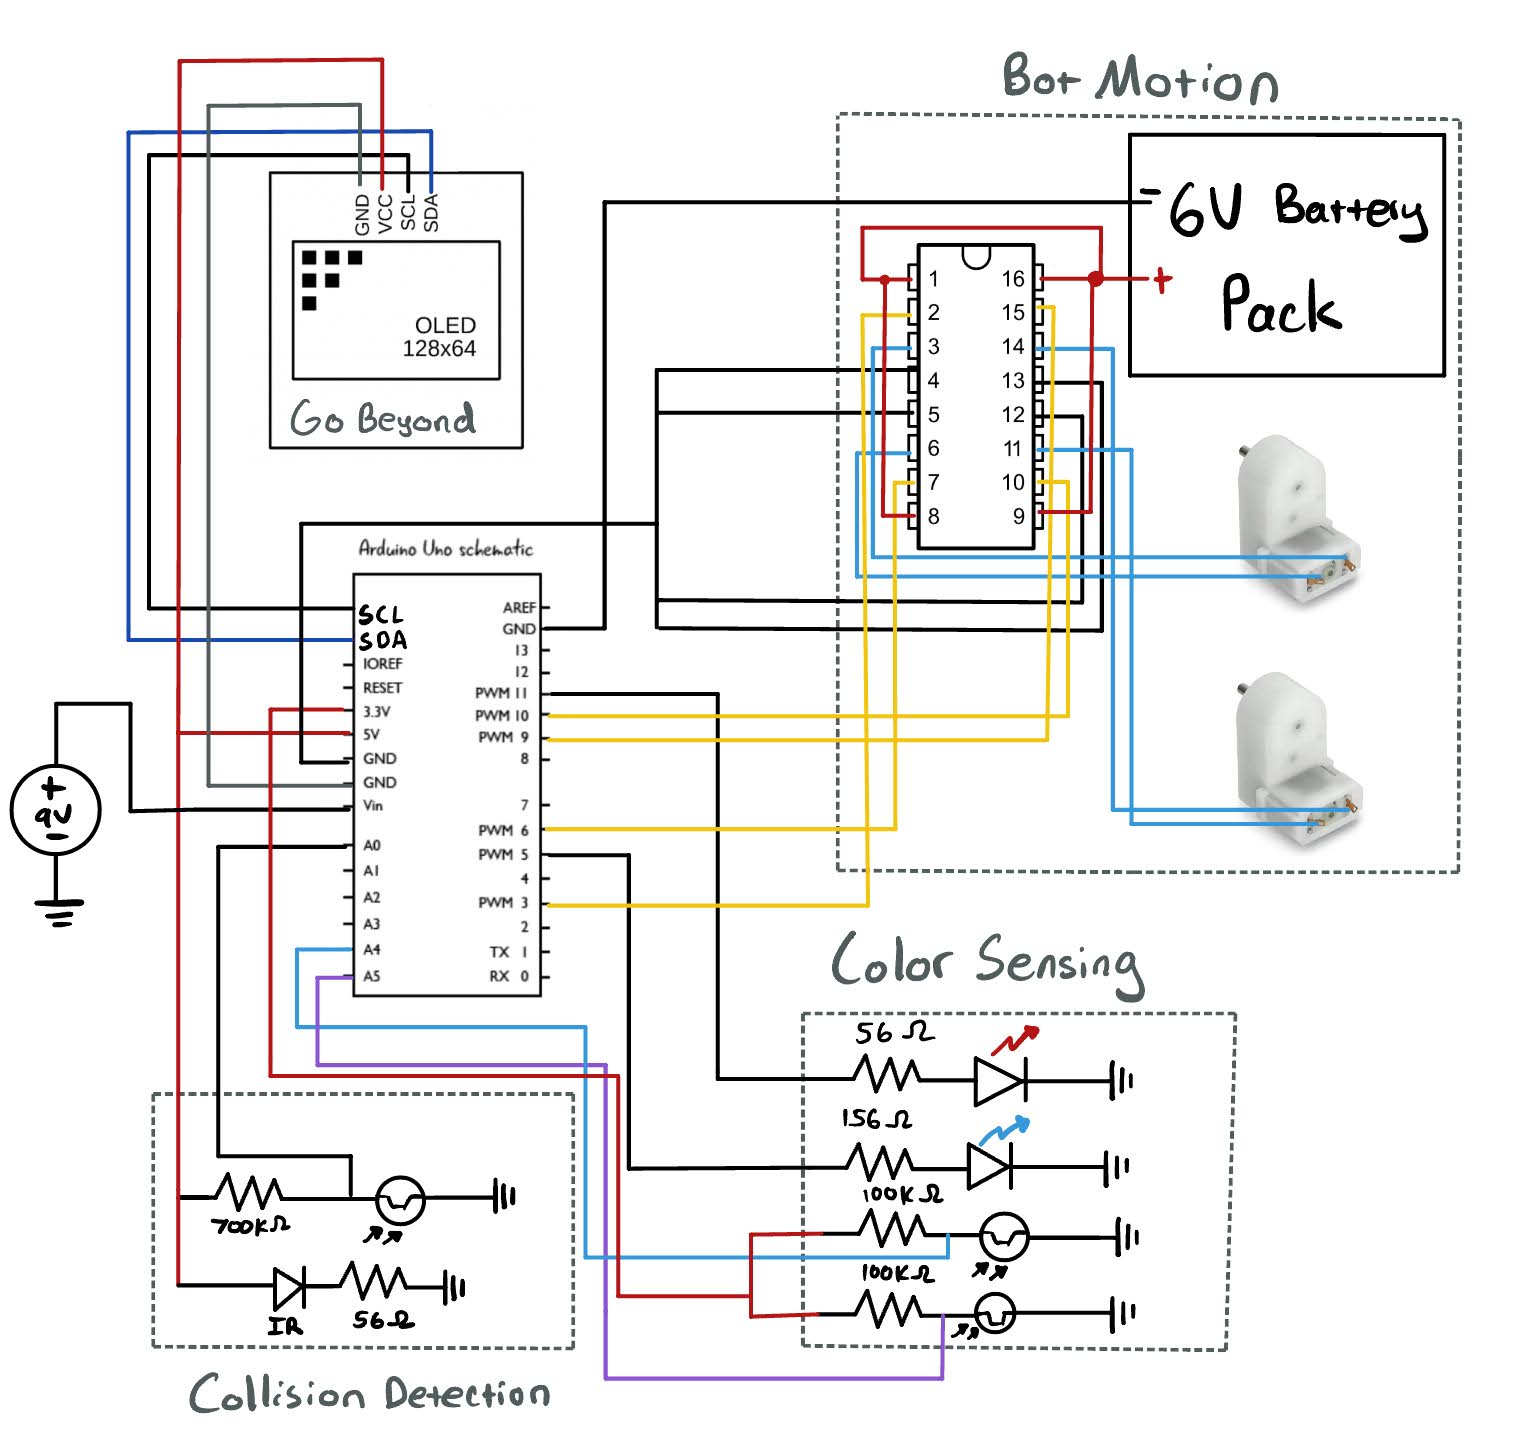 Bot Motion
GND
VCC
SCL
SDA
OLED
128x64
Go Beyond
- 6V Battery
+ Pack
1 16
2 15
3 14
4 13
5 12
6 11
7 10
8 9
Arduino Uno schematic
SCL
SDA
IOREF
RESET
3.3V
5V
GND
GND
Vin
A0
A1
A2
A3
A4
A5
AREF
GND
13
12
PWM 11
PWM 10
PWM 9
8
7
PWM 6
PWM 5
4
PWM 3
2
TX 1
RX 0
+
9V
-
Color Sensing
56 Ω
156 Ω
100K Ω
100K Ω
700KΩ
IR
56Ω
Collision Detection